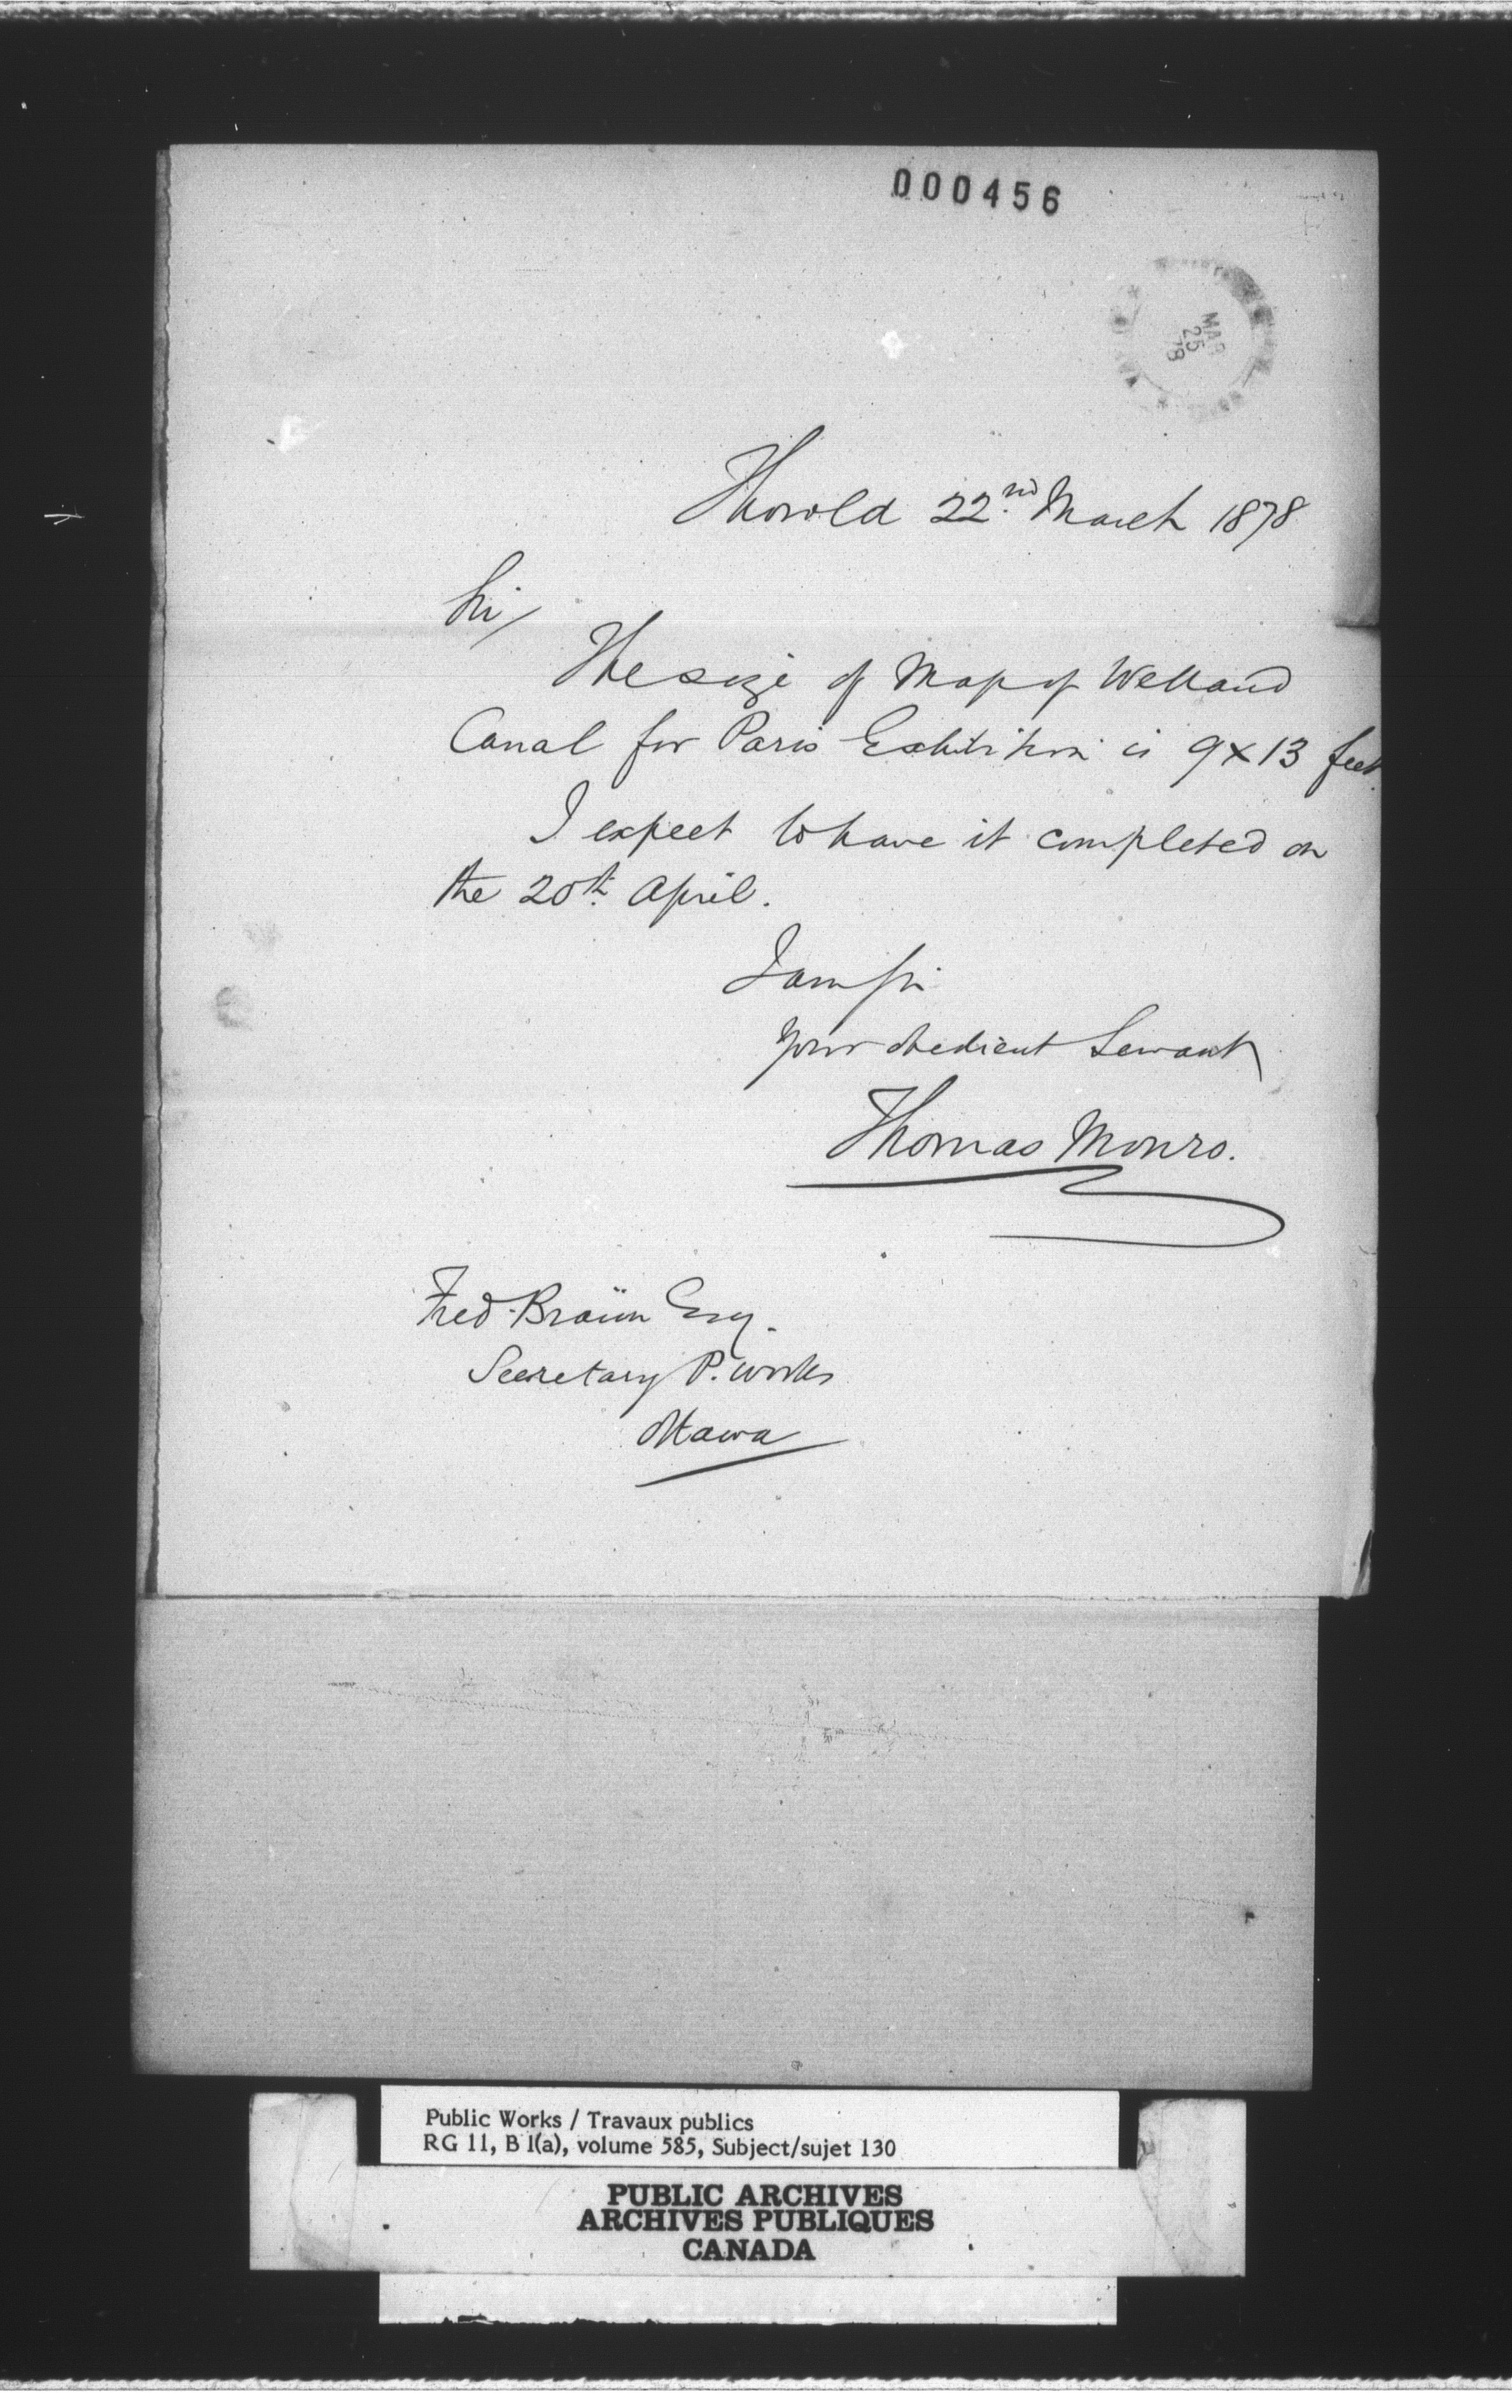 000456
MAR
25
78
Thorold 22nd March 1878
Sir/
The size of Map of Welland
Canal for Paris Exhibition is 9x13 feet.
I expect to have it completed on
the 20th April.
I am Sir
Your obedient Servant
Thomas Monro.
Fred. Braün Esq.
Secretary P. Works
Ottawa
Public Works / Travaux publics
RG 11, B 1(a), volume 585, Subject/sujet 130
PUBLIC ARCHIVES
ARCHIVES PUBLIQUES
CANADA